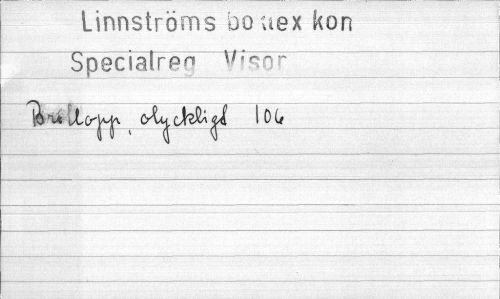 Linnströms boklex kon
Specialreg Visor
Bröllopp, olyckligt 106